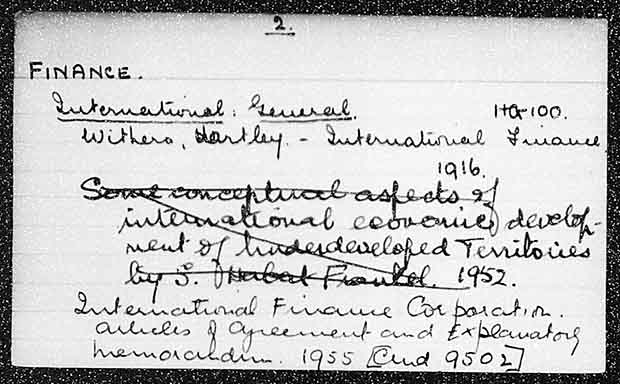 2.
FINANCE.
International: General. HG-100.
Withers, Hartley. - International Finance
1916.
Some conceptual aspects of
international economic develop-
ment of Underdeveloped Territories
by S. Herbert Frankel. 1952.
International Finance Corporation.
Articles of Agreement and Explanatory
Memorandum. 1955 [Cmd 9502]